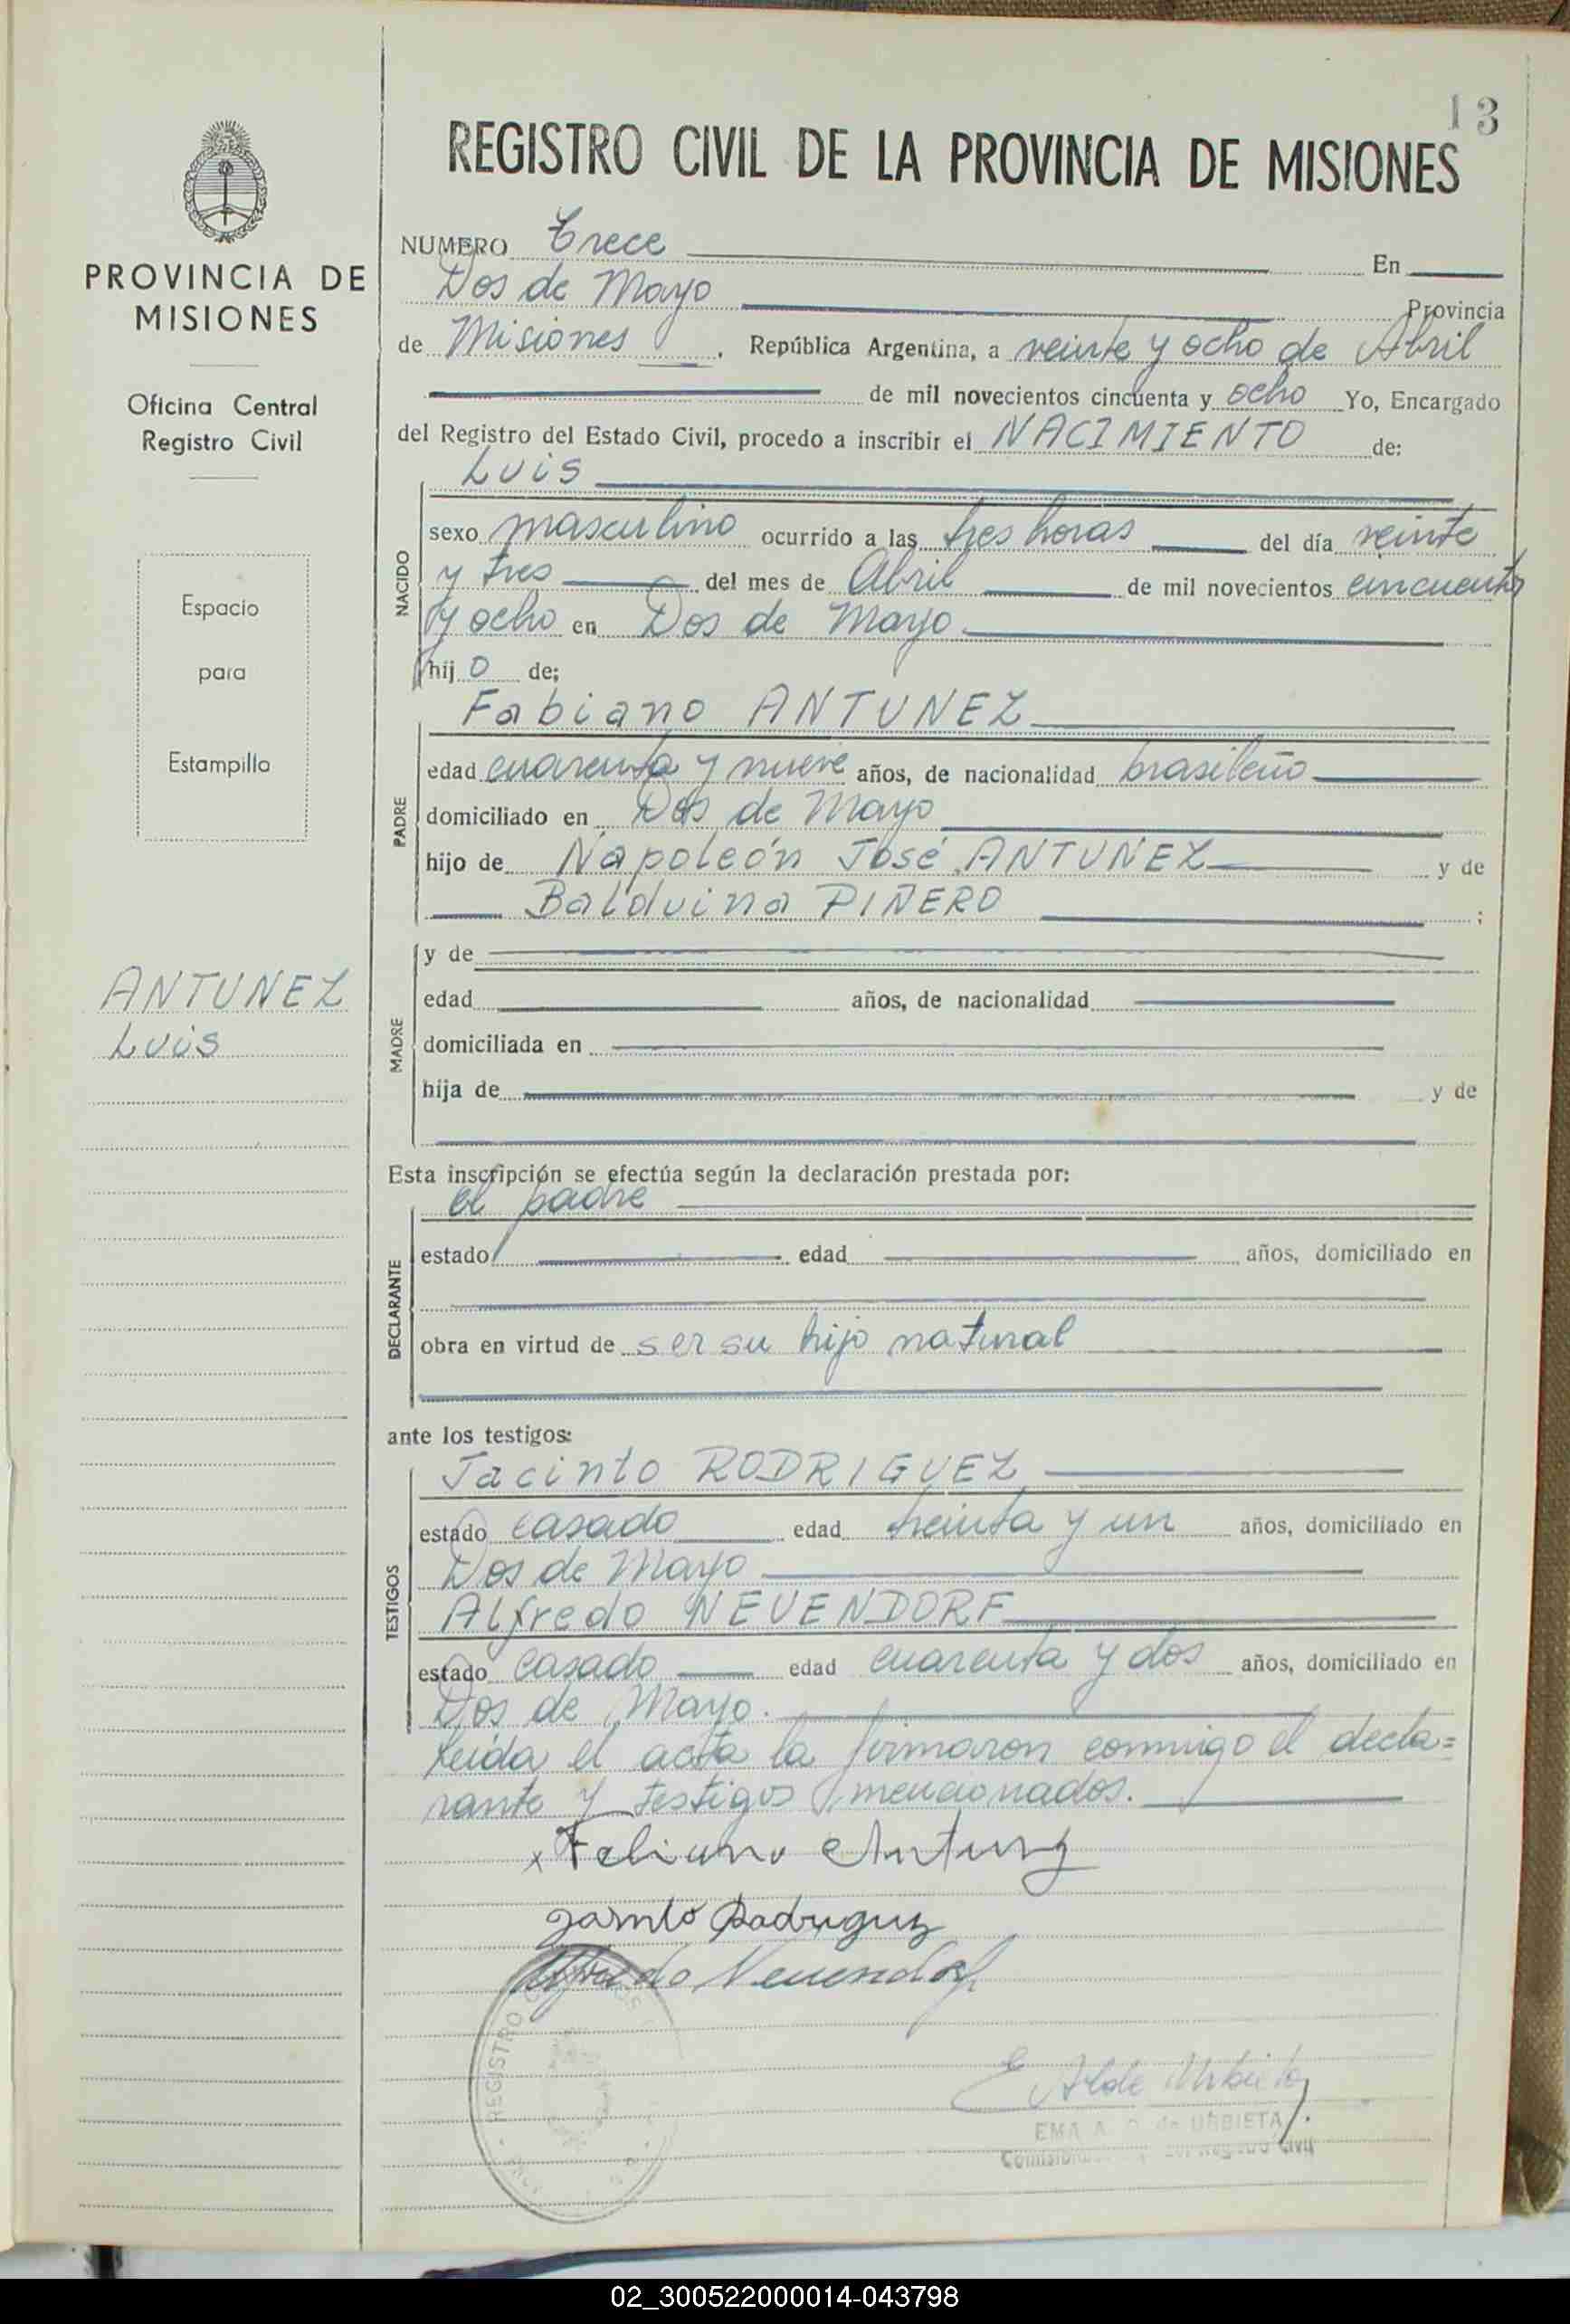 13
REGISTRO CIVIL DE LA PROVINCIA DE MISIONES
PROVINCIA DE
MISIONES
Oficina Central
Registro Civil
Espacio
para
Estampilla
ANTUNEZ
Luis
NUMERO Trece En
Dos de Mayo Provincia
de Misiones, República Argentina, a veinte y ocho de Abril
de mil novecientos cincuenta y ocho Yo, Encargado
del Registro del Estado Civil, procedo a inscribir el NACIMIENTO de:
NACIDO
Luis
sexo masculino ocurrido a las tres horas del día veinte
y tres del mes de Abril de mil novecientos cincuenta
y ocho en Dos de Mayo
hijo de;
PADRE
Fabiano ANTUNEZ
edad cuarenta y nueve años, de nacionalidad brasileño
domiciliado en Dos de Mayo
hijo de Napoleón José ANTUNEZ y de
Balduina PIÑERO ;
MADRE
y de
edad años, de nacionalidad
domiciliada en
hija de y de
Esta inscripción se efectúa según la declaración prestada por:
DECLARANTE
el padre
estado edad años, domiciliado en
obra en virtud de ser su hijo natural
ante los testigos:
TESTIGOS
Jacinto RODRIGUEZ
estado casado edad treinta y un años, domiciliado en
Dos de Mayo
Alfredo NEUENDORF
estado casado edad cuarenta y dos años, domiciliado en
Dos de Mayo.
Leída el acta la firmaron conmigo el decla=
rante y testigos mencionados.
x
Alfredo Neuendorf
REGISTRO
EMA A. de URBIETA
Registro Civil
02_300522000014-043798